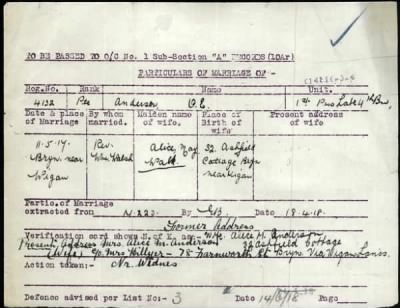 TO BE PASSED TO O/C No. 1 Sub-Section "A" RECORDS (LDAr)
PARTICULARS OF MARRIAGE OF:-
Reg.No. Rank Name Unit.
4132 Pte Anderson O.E. 1st Pnrs late 4th Bn
Date & place of Marriage By whom married. Maiden name of wife. Place of Birth of Wife Present address
11.5.17. Rev. Alice May 32. Ashfield
Bryn near Wm Walsh Cottage Bryn
Wigan near Wigan
Partic, of Marriage
extracted from N.223. By Date 18.4.18.
Former Address
Verification card shows N. of K. as:- Wife Alice M. Anderson
Present Address Mrs. Alice M. Anderson 32 Ashfield Cottage
(Wife) C/o Mrs Hillyer - 78 Farnworth St Bryn Via Wigan Lancs.
Action taken:- Nr. Widnes
Defence advised per List No:- 3 Date 14/6/18